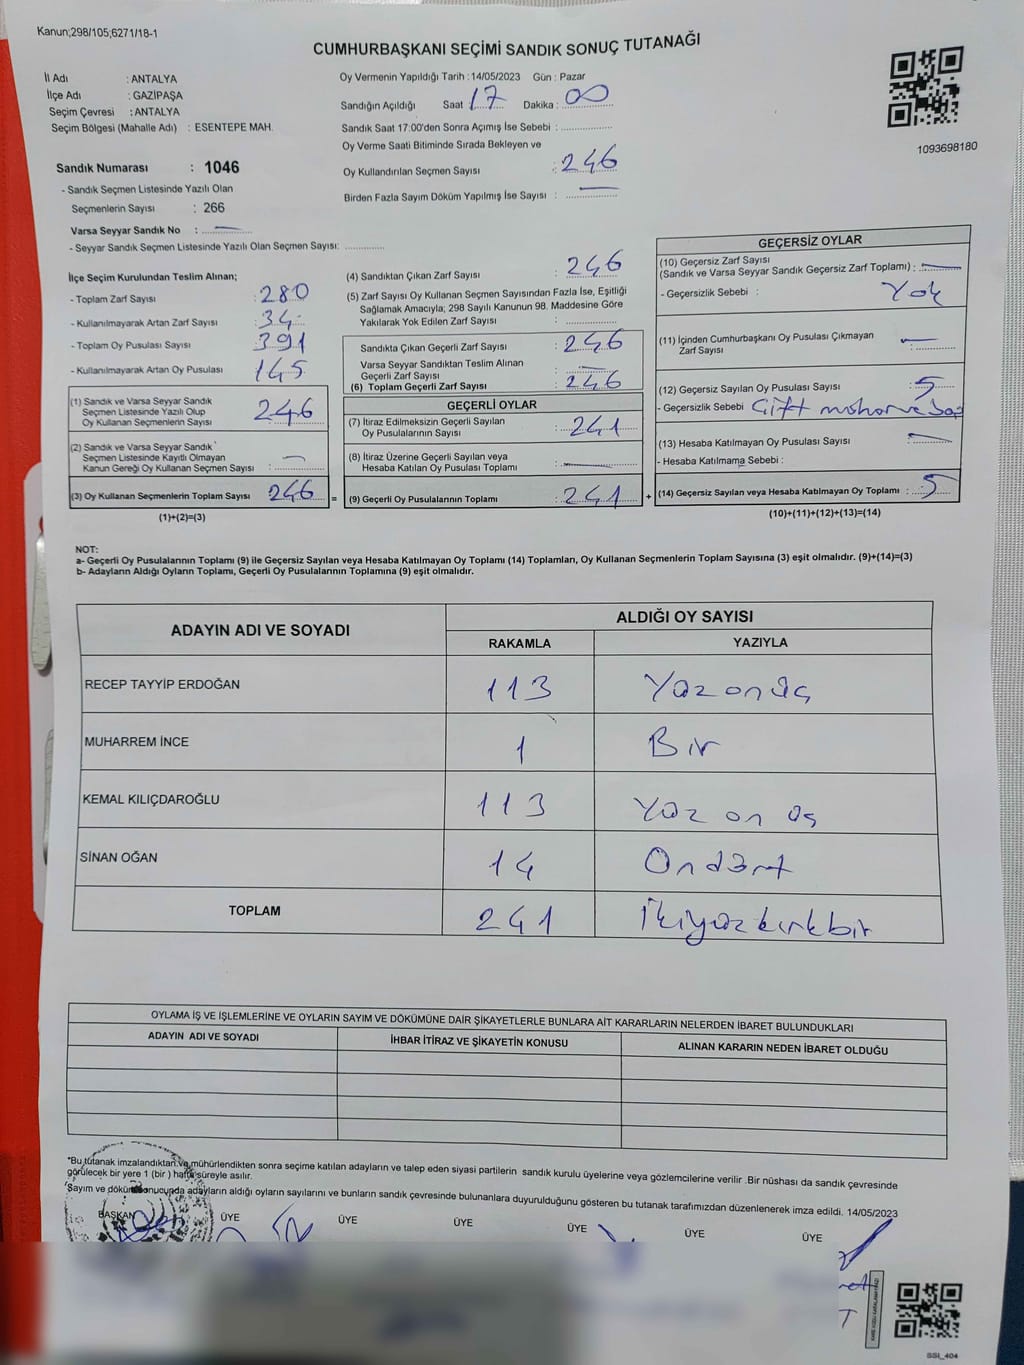 Kanun;298/105;6271/18-1
CUMHURBAŞKANI SEÇİMİ SANDIK SONUÇ TUTANAĞI
İl Adı : ANTALYA
İlçe Adı : GAZİPAŞA
Seçim Çevresi : ANTALYA
Seçim Bölgesi (Mahalle Adı) : ESENTEPE MAH.
Sandık Numarası : 1046
- Sandık Seçmen Listesinde Yazılı Olan
Seçmenlerin Sayısı : 266
Varsa Seyyar Sandık No : —
- Seyyar Sandık Seçmen Listesinde Yazılı Olan Seçmen Sayısı: ............
Oy Vermenin Yapıldığı Tarih : 14/05/2023 Gün : Pazar
Sandığın Açıldığı Saat 17 Dakika : 00
Sandık Saat 17:00'den Sonra Açımış İse Sebebi : ............
Oy Verme Saati Bitiminde Sırada Bekleyen ve
Oy Kullandırılan Seçmen Sayısı : 246
Birden Fazla Sayım Döküm Yapılmış İse Sayısı : —
1093698180
İlçe Seçim Kurulundan Teslim Alınan;
- Toplam Zarf Sayısı : 280
- Kullanılmayarak Artan Zarf Sayısı : 34
- Toplam Oy Pusulası Sayısı : 391
- Kullanılmayarak Artan Oy Pusulası : 145
(1) Sandık ve Varsa Seyyar Sandık
Seçmen Listesinde Yazılı Olup
Oy Kullanan Seçmenlerin Sayısı : 246
(2) Sandık ve Varsa Seyyar Sandık
Seçmen Listesinde Kayıtlı Olmayan
Kanun Gereği Oy Kullanan Seçmen Sayısı : —
(3) Oy Kullanan Seçmenlerin Toplam Sayısı 246 =
(1)+(2)=(3)
(4) Sandıktan Çıkan Zarf Sayısı : 246
(5) Zarf Sayısı Oy Kullanan Seçmen Sayısından Fazla İse, Eşitliği
Sağlamak Amacıyla; 298 Sayılı Kanunun 98. Maddesine Göre
Yakılarak Yok Edilen Zarf Sayısı : ............
Sandıkta Çıkan Geçerli Zarf Sayısı : 246
Varsa Seyyar Sandıktan Teslim Alınan
Geçerli Zarf Sayısı : —
(6) Toplam Geçerli Zarf Sayısı : 246
GEÇERLİ OYLAR
(7) İtiraz Edilmeksizin Geçerli Sayılan
Oy Pusulalarının Sayısı : 241
(8) İtiraz Üzerine Geçerli Sayılan veya
Hesaba Katılan Oy Pusulası Toplamı : —
(9) Geçerli Oy Pusulalarının Toplamı : 241 +
GEÇERSİZ OYLAR
(10) Geçersiz Zarf Sayısı
(Sandık ve Varsa Seyyar Sandık Geçersiz Zarf Toplamı) : —
- Geçersizlik Sebebi : Yok
(11) İçinden Cumhurbaşkanı Oy Pusulası Çıkmayan
Zarf Sayısı : —
(12) Geçersiz Sayılan Oy Pusulası Sayısı : 5
- Geçersizlik Sebebi Çift mühür ve
(13) Hesaba Katılmayan Oy Pusulası Sayısı : —
- Hesaba Katılmama Sebebi :
(14) Geçersiz Sayılan veya Hesaba Katılmayan Oy Toplamı : 5
(10)+(11)+(12)+(13)=(14)
NOT:
a- Geçerli Oy Pusulalarının Toplamı (9) ile Geçersiz Sayılan veya Hesaba Katılmayan Oy Toplamı (14) Toplamları, Oy Kullanan Seçmenlerin Toplam Sayısına (3) eşit olmalıdır. (9)+(14)=(3)
b- Adayların Aldığı Oyların Toplamı, Geçerli Oy Pusulalarının Toplamına (9) eşit olmalıdır.
ADAYIN ADI VE SOYADI ALDIĞI OY SAYISI
RAKAMLA YAZIYLA
RECEP TAYYİP ERDOĞAN 113 Yüz onüç
MUHARREM İNCE 1 Bir
KEMAL KILIÇDAROĞLU 113 Yüz on üç
SİNAN OĞAN 14 Ondört
TOPLAM 241 İkiyüzkırkbir
OYLAMA İŞ VE İŞLEMLERİNE VE OYLARIN SAYIM VE DÖKÜMÜNE DAİR ŞİKAYETLERLE BUNLARA AİT KARARLARIN NELERDEN İBARET BULUNDUKLARI
ADAYIN ADI VE SOYADI İHBAR İTİRAZ VE ŞİKAYETİN KONUSU ALINAN KARARIN NEDEN İBARET OLDUĞU
*Bu tutanak imzalandıktan ve mühürlendikten sonra seçime katılan adayların ve talep eden siyasi partilerin sandık kurulu üyelerine veya gözlemcilerine verilir .Bir nüshası da sandık çevresinde
görülecek bir yere 1 (bir ) hafta süreyle asılır.
*Sayım ve döküm sonucunda adayların aldığı oyların sayılarını ve bunların sandık çevresinde bulunanlara duyurulduğunu gösteren bu tutanak tarafımızdan düzenlenerek imza edildi. 14/05/2023
BAŞKAN ÜYE ÜYE ÜYE ÜYE ÜYE ÜYE
SSİ_404